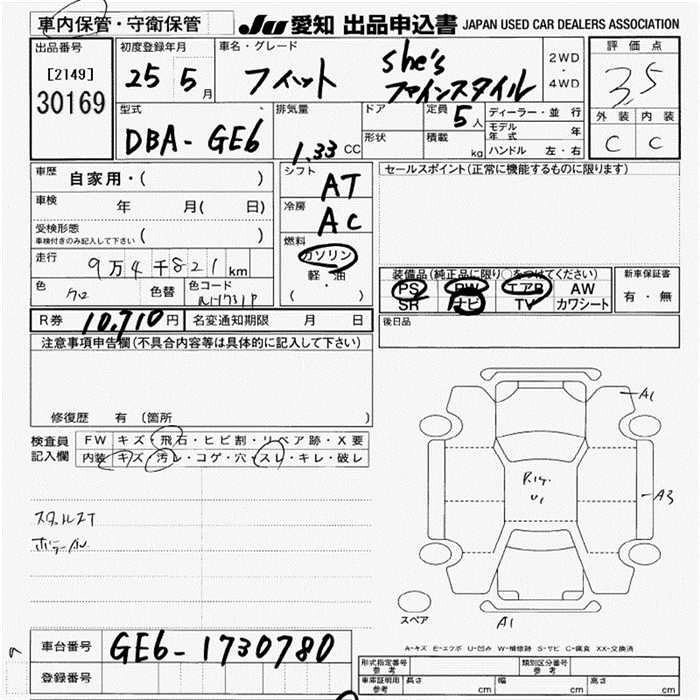 車内保管・守衛保管 JU 愛知 出品申込書 JAPAN USED CAR DEALERS ASSOCIATION
出品番号 初度登録年月 車名・グレード 評価点
[2149] 25 5月 フィット she's 2WD・4WD 3.5
30169 ファインスタイル
型式 排気量 ドア 定員 5人 ディーラー・並行 外装 内装
DBA-GE6 1.33 CC 形状 積載 kg モデル年式 年 C C
ハンドル 左・右
車歴 自家用・( ) シフト AT セールスポイント(正常に機能するものに限ります)
車検 年 月( 日) 冷房 AC
受検形態 ( )
車検付きのみ記入して下さい
燃料 ガソリン
軽・油
( )
走行 9万4千821km
装備品(純正品に限り○をつけてください) 新車保証書
色 クロ 色替 色コード
PS PW エアB AW 有・無
SR ナビ TV カワシート
R券 10,710円 名変通知期限 月 日 後日品
注意事項申告欄(不具合内容等は具体的に記入して下さい)
修復歴 有 (箇所 )
検査員記入欄 FW キズ・飛石・ヒビ割・リペア跡・X要
内装 キズ・汚レ・コゲ・穴・スレ・キレ・破レ
A1
A3
U1
A1
スペア
A-キズ E-エクボ U-凹み W-補修跡 S-サビ C-腐食 XX-交換済
車台番号 GE6-1730780
登録番号
形式指定番号 参考 類別区分番号 参考
車庫証明用 参考 長さ cm 幅 cm 高さ cm